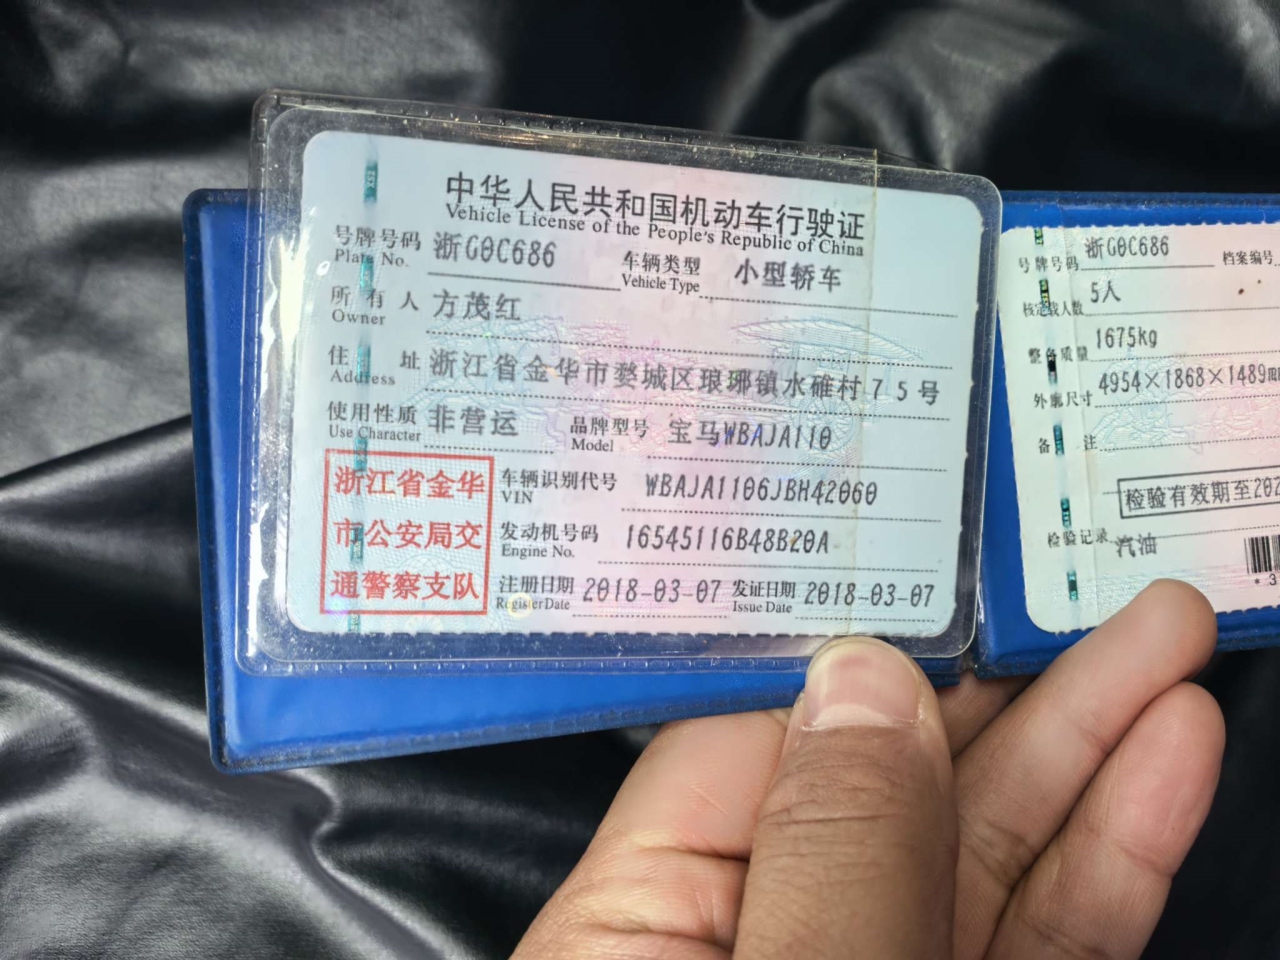 中华人民共和国机动车行驶证
Vehicle License of the People's Republic of China
号牌号码 浙G0C686 车辆类型 小型轿车
Plate No. Vehicle Type
所有人 方茂红
Owner
住址 浙江省金华市婺城区琅琊镇水碓村75号
Address
使用性质 非营运 品牌型号 宝马WBAJA110
Use Character Model
浙江省金华
市公安局交
通警察支队
车辆识别代号 WBAJA1106JBH42060
VIN
发动机号码 16545116B48B20A
Engine No.
注册日期 2018-03-07 发证日期 2018-03-07
Register Date Issue Date
号牌号码 浙G0C686 档案编号
核定载人数 5人
整备质量 1675kg
外廓尺寸 4954×1868×1489
备注
检验有效期至202
检验记录 汽油
*3